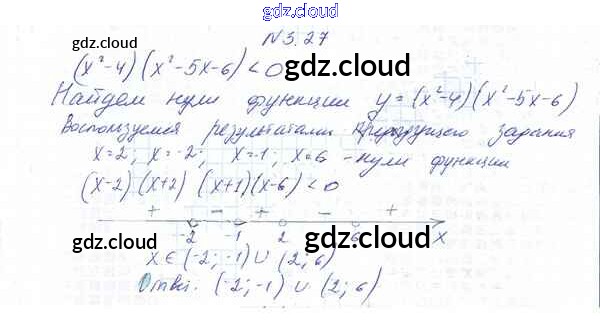 gdz.cloud
N 3.27
gdz.cloud gdz.cloud
(x²-4)(x²-5x-6)<0
Найдем нули функции y=(x²-4)(x²-5x-6)
Воспользуемся результатами предыдущего задания
x=2; x=-2; x=-1; x=6 - нули функции
gdz.cloud gdz.cloud
(x-2)(x+2)(x+1)(x-6)<0
+ - + - +
-2 -1 2 6 x
gdz.cloud gdz.cloud
x∈(-2;-1)∪(2;6)
Ответ: (-2;-1)∪(2;6)
gdz.cloud